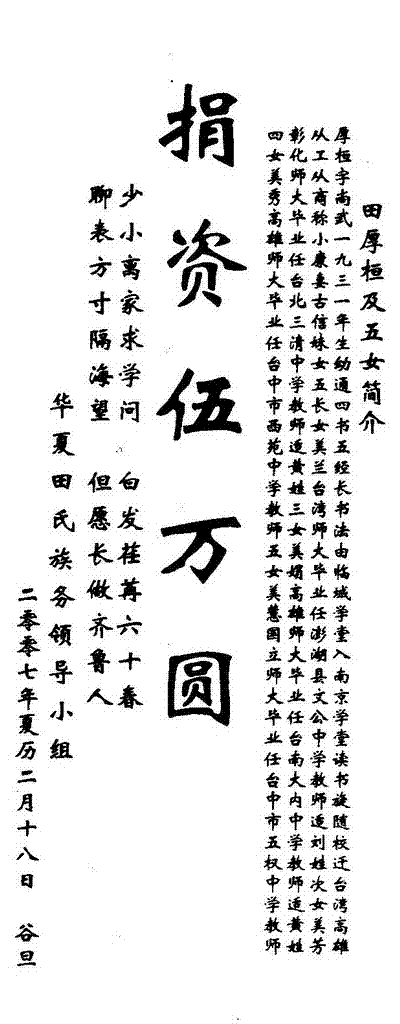 田厚桓及五女简介
厚桓字尚武一九三一年生幼通四书五经长书法由临城学堂入南京学堂读书旋随校迁台湾高雄
从工从商称小康妻古信妹女五长女美兰台湾师大毕业任澎湖县文公中学教师适刘姓次女美芳
彰化师大毕业任台北三清中学教师适黄姓三女美娟高雄师大毕业任台南大内中学教师适黄姓
四女美秀高雄师大毕业任台中市西苑中学教师五女美慧国立师大毕业任台中市五权中学教师
捐资伍万圆
少小离家求学问 白发荏苒六十春
聊表方寸隔海望 但愿长做齐鲁人
华夏田氏族务领导小组
二零零七年夏历二月十八日 谷旦